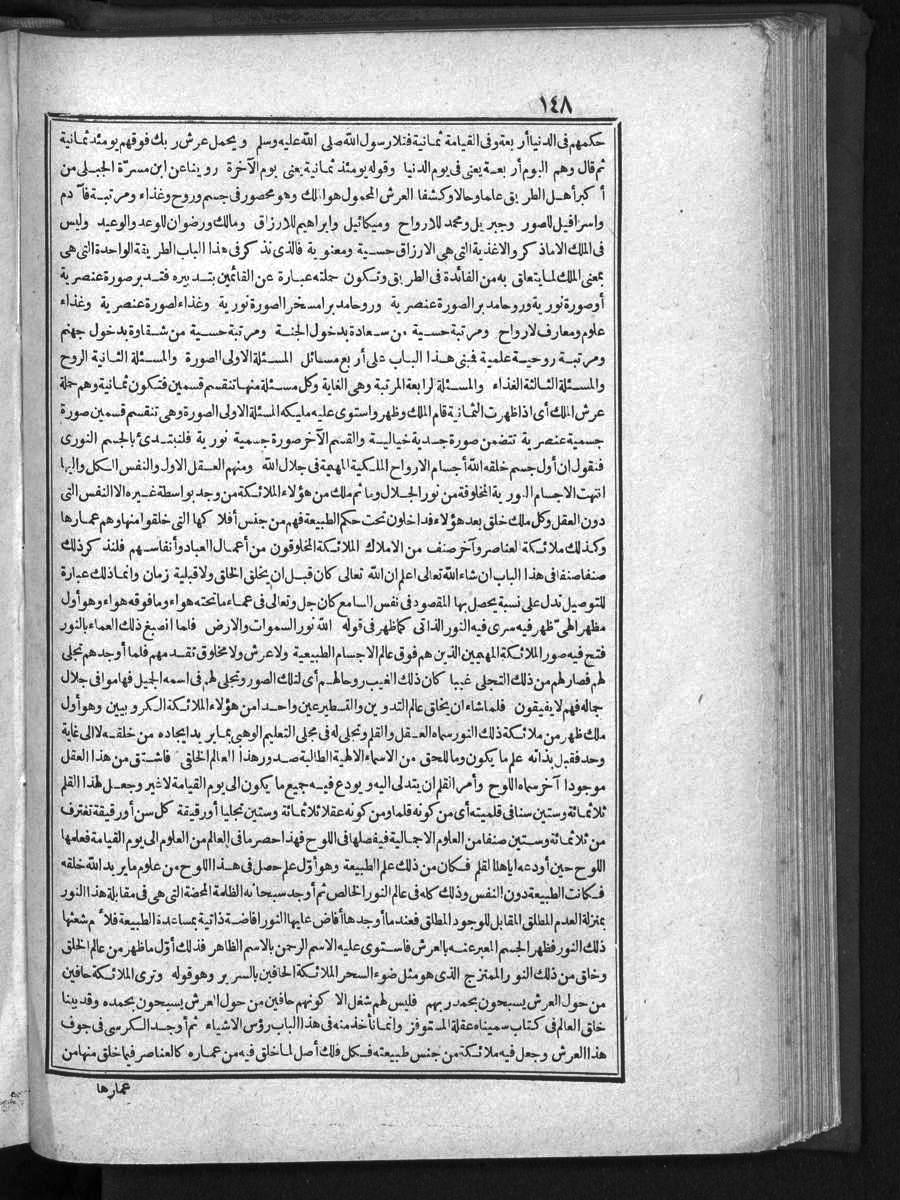 ١٤٨
حكمهم في الدنيا أربعة وفي القيامة ثمانية فتلا رسول الله صلى الله عليه وسلم ويحمل عرش ربك فوقهم يومئذ ثمانية
ثم قال وهم اليوم أربعة يعنى في يوم الدنيا وقوله يومئذ ثمانية يعنى يوم الآخرة روينا عن ابن مسرة الجبلى من
أكبر أهل الطريق علما وحالا وكشفا العرش المحمول هو الملك وهو محصور في جسم وروح وغذاء ومرتبة فآدم
واسرافيل للصور وجبريل ومحمد للارواح وميكائيل وابراهيم للارزاق ومالك ورضوان للوعد والوعيد وليس
في الملك الا ماذكر والاغذية التى هى الارزاق حسية ومعنوية فالذى نذكر في هذا الباب الطريقة الواحدة التى هى
بمعنى الملك لما يتعلق به من الفائدة في الطريق وتكون حملته عبارة عن القائمين بتدبيره فتدبر صورة عنصرية
أو صورة نورية وروحا مدبر الصورة عنصرية وروحا مدبرا مسخر الصورة نورية وغذاء لصورة عنصرية وغذاء
علوم ومعارف لارواح ومرتبة حسية من سعادة بدخول الجنة ومرتبة حسية من شقاوة بدخول جهنم
ومرتبة روحية علمية فبنى هذا الباب على أربع مسائل المسئلة الاولى الصورة والمسئلة الثانية الروح
والمسئلة الثالثة الغذاء والمسئلة الرابعة المرتبة وهى الغاية وكل مسئلة منها تنقسم قسمين فتكون ثمانية وهم حملة
عرش الملك أى اذا ظهرت الثمانية قام الملك وظهر واستوى عليه مليكه المسئلة الاولى الصورة وهى تنقسم قسمين صورة
جسمية عنصرية تتضمن صورة جسدية خيالية والقسم الآخر صورة جسمية نورية فلنبتدئ بالجسم النورى
فنقول ان أول جسم خلقه الله أجسام الارواح الملكية المهيمة في جلال الله ومنهم العقل الاول والنفس الكل واليها
انتهت الاجسام النورية المخلوقة من نور الجلال وما ثم ملك من هؤلاء الملائكة من وجد بواسطة غيره الا النفس التى
دون العقل وكل ملك خلق بعد هؤلاء فداخلون تحت حكم الطبيعة فهم من جنس أفلاكها التى خلقوا منها وهم عمارها
وكذلك ملائكة العناصر وآخر صنف من الاملاك الملائكة المخلوقون من أعمال العباد وأنفاسهم فلنذكر ذلك
صنفا صنفا في هذا الباب ان شاء الله تعالى اعلم ان الله تعالى كان قبل ان يخلق الخلق ولا قبلية زمان وانما ذلك عبارة
للتوصيل تدل على نسبة يحصل بها المقصود في نفس السامع كان جل وتعالى في عماء ما تحته هواء وما فوقه هواء وهو أول
مظهر الهىّ ظهر فيه سرى فيه النور الذاتى كما ظهر في قوله الله نور السموات والارض فلما انصبغ ذلك العماء بالنور
فتح فيه صور الملائكة المهيمين الذين هم فوق عالم الاجسام الطبيعية ولا عرش ولا مخلوق تقدمهم فلما أوجدهم تجلى
لهم فصار لهم من ذلك التجلى غيبا كان ذلك الغيب روحا لهم أى لتلك الصور وتجلى لهم في اسمه الجميل فهاموا في جلال
جماله فهم لا يفيقون فلما شاء ان يخلق عالم التدوين والتسطير عين واحدا من هؤلاء الملائكة الكروبيين وهو أول
ملك ظهر من ملائكة ذلك النور سماه العقل والقلم وتجلى له في مجلى التعليم الوهبى بما يريد ايجاده من خلقه لا الى غاية
وحد فقبل بذاته علم ما يكون وما للحق من الاسماء الالهية الطالبة صدور هذا العالم الخلقى فاشتق من هذا العقل
موجودا آخر سماه اللوح وأمر القلم ان يتدلى اليه ويودع فيه جميع ما يكون الى يوم القيامة لا غير وجعل لهذا القلم
ثلاثمائة وستين سنا في قلميته أى من كونه قلما ومن كونه عقلا ثلاثمائة وستين تجليا أو رقيقة كل سن أو رقيقة تغترف
من ثلاثمائة وستين صنفا من العلوم الاجمالية فيفصلها في اللوح فهذا حصر ما في العالم من العلوم الى يوم القيامة فعلمها
اللوح حين أودعه اياها القلم فكان من ذلك علم الطبيعة وهو أوّل علم حصل في هذا اللوح من علوم ما يريد الله خلقه
فكانت الطبيعة دون النفس وذلك كله في عالم النور الخالص ثم أوجد سبحانه الظلمة المحضة التى هى في مقابلة هذا النور
بمنزلة العدم المطلق المقابل للوجود المطلق فعندما أوجدها أفاض عليها النور افاضة ذاتية بمساعدة الطبيعة فلأم شعثها
ذلك النور فظهر الجسم المعبر عنه بالعرش فاستوى عليه الاسم الرحمن بالاسم الظاهر فذلك أوّل ما ظهر من عالم الخلق
وخلق من ذلك النور الممتزج الذى هو مثل ضوء السحر الملائكة الحافين بالسرير وهو قوله وترى الملائكة حافين
من حول العرش يسبحون بحمد ربهم فليس لهم شغل الا كونهم حافين من حول العرش يسبحون بحمده وقد بينا
خلق العالم في كتاب سميناه عقلة المستوفز وانما نأخذ منه في هذا الباب رؤس الاشياء ثم أوجد الكرسى في جوف
هذا العرش وجعل فيه ملائكة من جنس طبيعته فكل فلك أصل لما خلق فيه من عماره كالعناصر فيما خلق منها من
عمارها